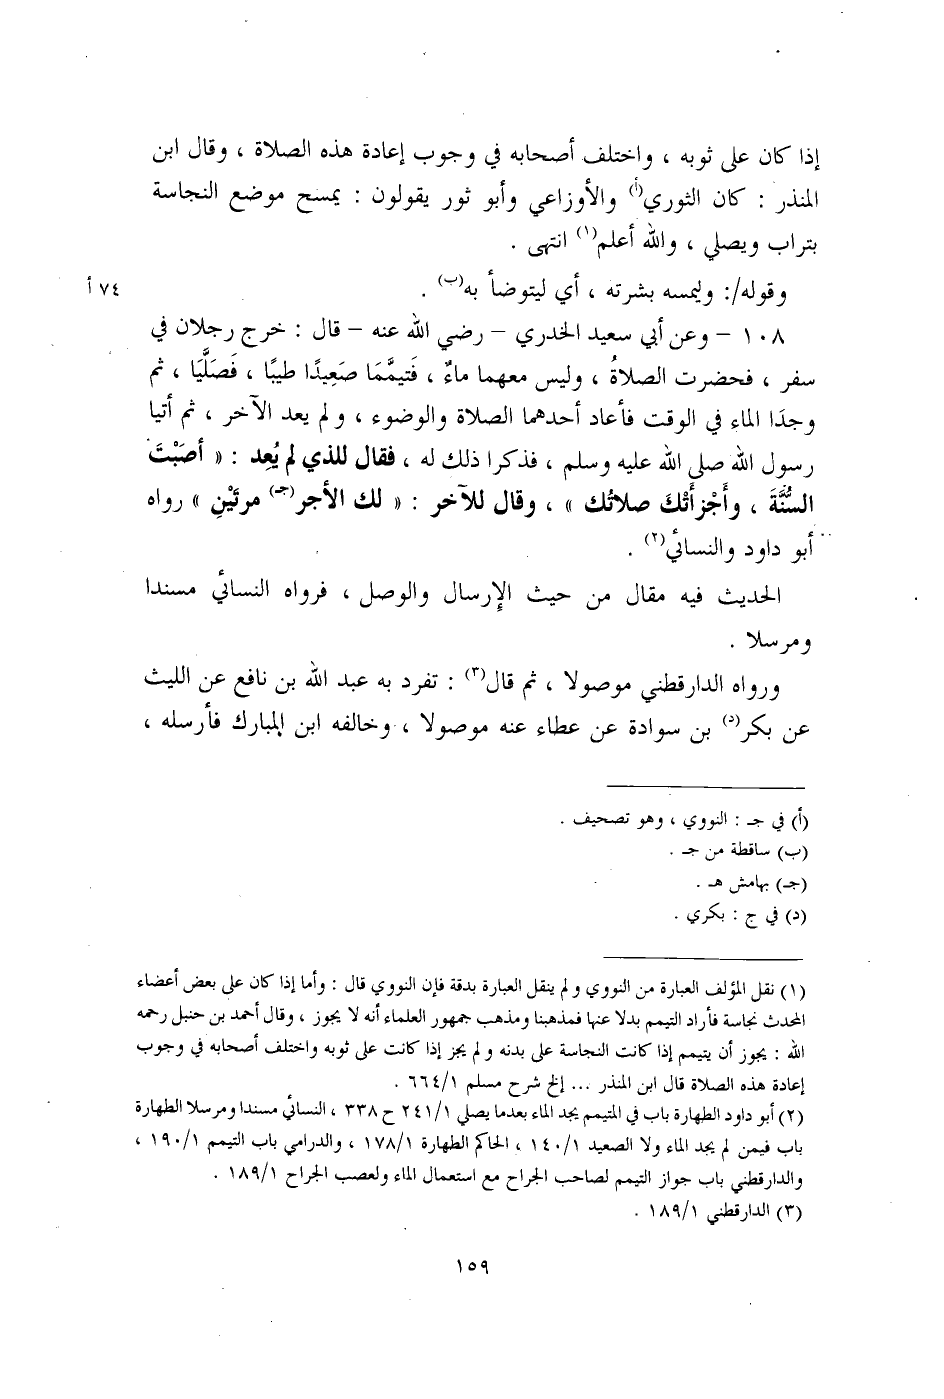 إذا كان على ثوبه ، واختلف أصحابه في وجوب إعادة هذه الصلاة ، وقال ابن
المنذر : كان الثوري(أ) والأوزاعي وأبو ثور يقولون : يمسح موضع النجاسة
بتراب ويصلي ، والله أعلم(١) انتهى .
وقوله/: وليمسه بشرته ، أي ليتوضأ به(ب) .
٧٤ أ
١٠٨ - وعن أبي سعيد الخدري - رضي الله عنه - قال : خرج رجلان في
سفر ، فحضرت الصلاةُ ، وليس معهما ماءٌ ، فَتيمَّمَا صَعِيدًا طيبًا ، فَصَلَّيَا ، ثم
وجدَا الماء في الوقت فأعاد أحدهما الصلاة والوضوء ، ولم يعد الآخر ، ثم أتيا
رسول الله صلى الله عليه وسلم ، فذكرا ذلك له ، فقال للذي لم يُعد : « أصَبْتَ
السُّنَّةَ ، وأَجْزأَتْكَ صلاتُك » ، وقال للآخر : « لك الأجر(جـ) مرتَيْنِ » رواه
أبو داود والنسائي(٢) .
الحديث فيه مقال من حيث الإرسال والوصل ، فرواه النسائي مسندا
ومرسلا .
ورواه الدارقطني موصولا ، ثم قال(٣) : تفرد به عبد الله بن نافع عن الليث
عن بكر(د) بن سوادة عن عطاء عنه موصولا ، وخالفه ابن المبارك فأرسله ،
(أ) في جـ : النووي ، وهو تصحيف .
(ب) ساقطة من جـ .
(جـ) بهامش هـ .
(د) في ج : بكري .
(١) نقل المؤلف العبارة من النووي ولم ينقل العبارة بدقة فإن النووي قال : وأما إذا كان على بعض أعضاء
المحدث نجاسة فأراد التيمم بدلا عنها فمذهبنا ومذهب جمهور العلماء أنه لا يجوز ، وقال أحمد بن حنبل رحمه
الله : يجوز أن يتيمم إذا كانت النجاسة على بدنه ولم يجز إذا كانت على ثوبه واختلف أصحابه في وجوب
إعادة هذه الصلاة قال ابن المنذر ... إلخ شرح مسلم ٦٦٤/١ .
(٢) أبو داود الطهارة باب في المتيمم يجد الماء بعدما يصلي ٢٤١/١ ح ٣٣٨ ، النسائي مسندا ومرسلا الطهارة
باب فيمن لم يجد الماء ولا الصعيد ١٤٠/١ ، الحاكم الطهارة ١٧٨/١ ، والدرامي باب التيمم ١٩٠/١ ،
والدارقطني باب جواز التيمم لصاحب الجراح مع استعمال الماء ولعصب الجراح ١٨٩/١ .
(٣) الدارقطني ١٨٩/١ .
١٥٩